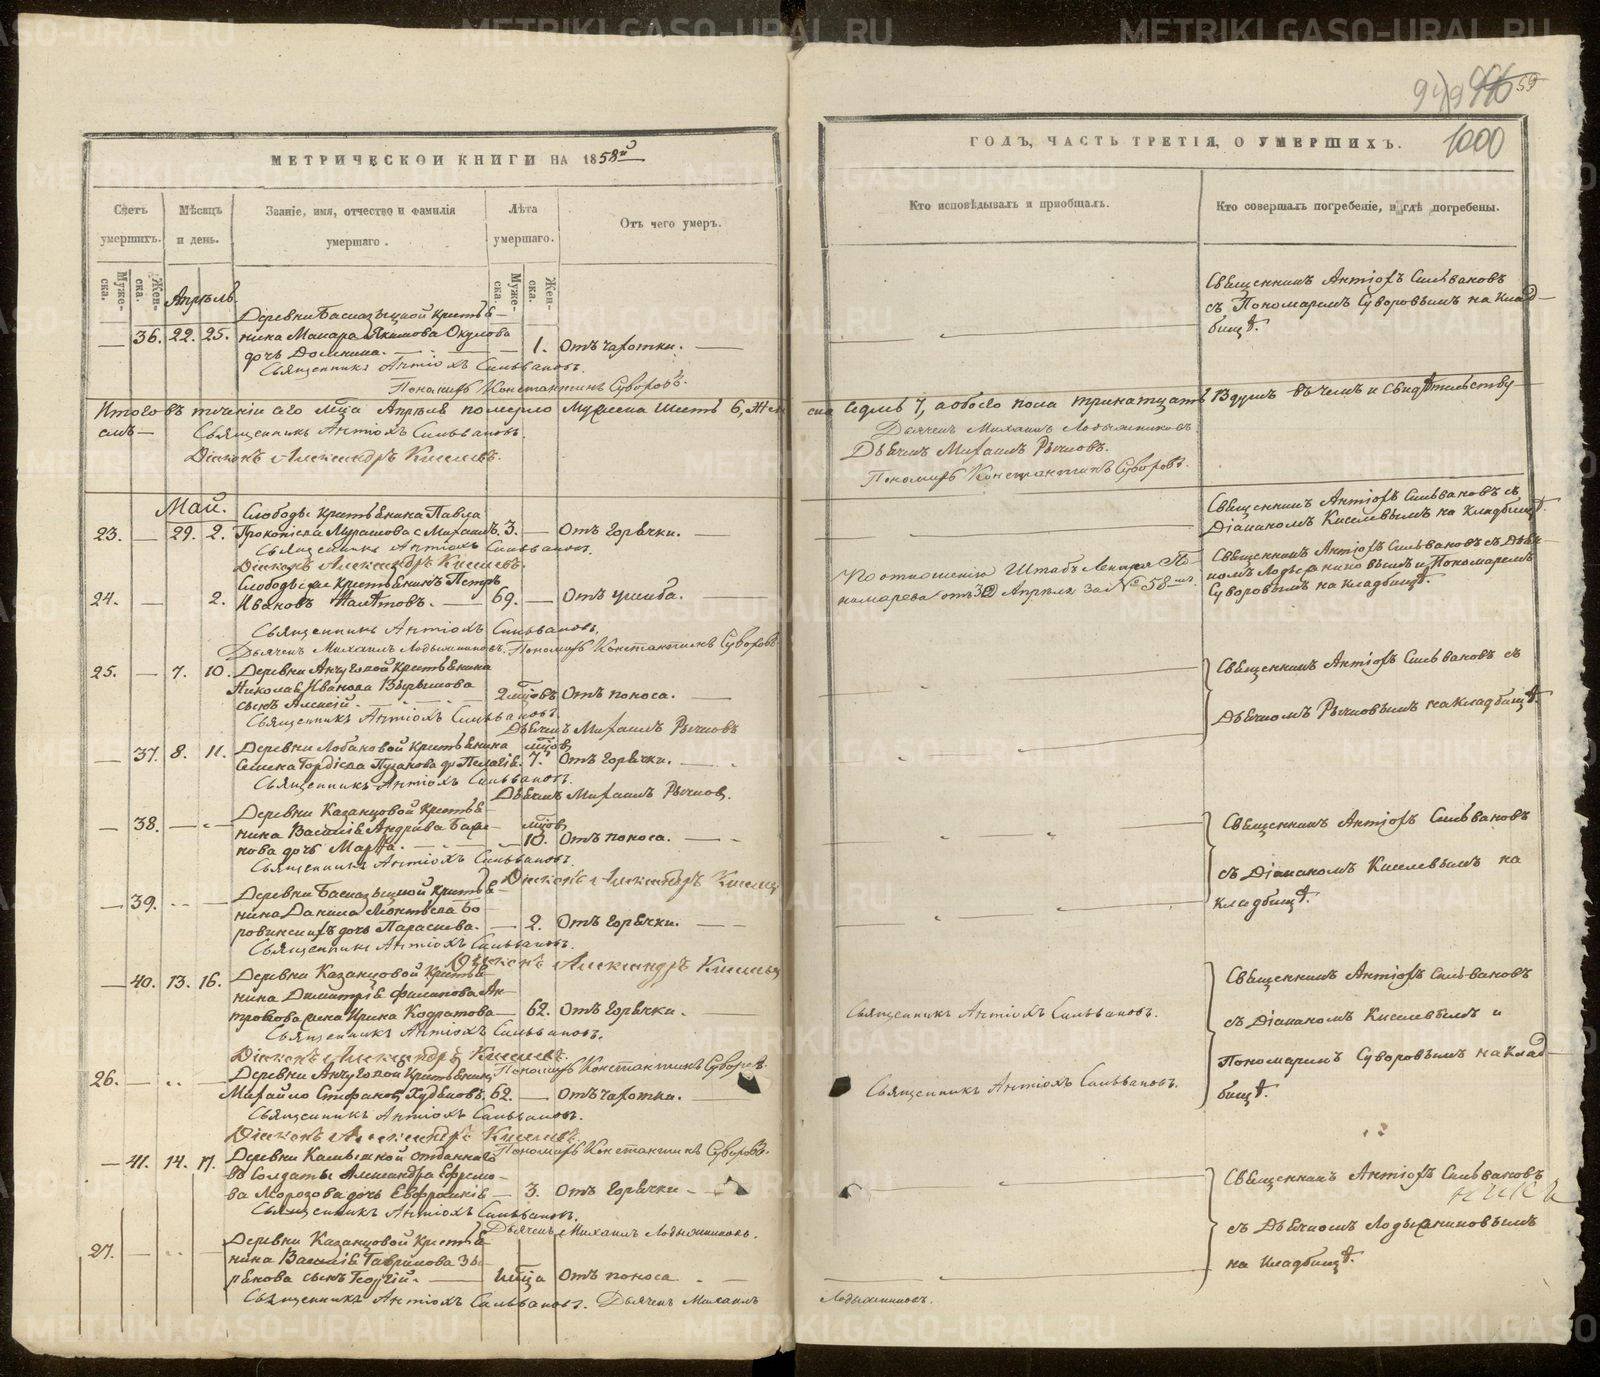 МЕТРИЧЕСКОЙ КНИГИ НА 1858й
Счетъ умершихъ.
Мѣсяцъ и день.
Званіе, имя, отчество и фамилія умершаго.
Лѣта умершаго.
Отъ чего умеръ.
Мужеска.
Женска.
Мужеска.
Женска.
Апрѣль.
Деревни
36. 22. 25. нина Макара Якимова Окулова
дочь Домнина. 1. Отъ чахотки.
Священникъ Антіохъ Сильвановъ.
Пономарь Константинъ Суворовъ.
Итого въ теченіи сего мца Апрѣля померло Мужеска шесть 6, Жен
Священникъ Антіохъ Сильвановъ.
Діаконъ Александръ Киселевъ.
Май.
Слободы крестьянина Павла
23. 29. 2. Прокопіева Мурашова с. Михаилъ. 3. Отъ горячки.
Священникъ Антіохъ Сильвановъ.
Діаконъ Александръ Киселевъ.
крестьянинъ Петръ
24. 2. Ивановъ 69. Отъ ушиба.
Священникъ Антіохъ Сильвановъ.
Дьячекъ Михаилъ Лодыжниковъ. Пономарь Константинъ Суворовъ
25. 7. 10. Деревни крестьянина
Николая Иванова
сынъ Алексій. 2 мцовъ Отъ поноса.
Священникъ Антіохъ Сильвановъ.
Дьячекъ Михаилъ Рычковъ
37. 8. 11. Деревни Лобановой крестьянина мцов
Семена Гордіева Пузакова д. Пелагія. 7. Отъ горячки.
Священникъ Антіохъ Сильвановъ.
Дьячекъ Михаилъ Рычков.
Деревни Казанцовой крестья-
38. нина Василія Андріева мцов
нова дочь Марѳа. 10. Отъ поноса.
Священникъ Антіохъ Сильвановъ.
Діаконъ Александръ Киселев
Деревни крестья-
39. нина Данила Бо-
ровинскихъ дочь Параскева. 2. Отъ горячки.
Священникъ Антіохъ Сильвановъ.
Діаконъ Александръ Киселевъ
40. 13. 16. Деревни Казанцовой крестья-
нина Димитрія Филипова Ан-
тропова жена Ирина Кодратова 62. Отъ горячки.
Священникъ Антіохъ Сильвановъ.
Діаконъ Александръ Киселевъ.
Пономарь Константинъ Суворов.
26. Деревни крестьянинъ
Михайло Стефановъ 62. Отъ чахотки.
Священникъ Антіохъ Сильвановъ.
Діаконъ Александръ Киселевъ
Пономарь Константинъ Суворовъ.
41. 14. 17. Деревни отданнаго
въ солдаты Александра Ефремо-
ва Морозова дочь Евфросинія 3. Отъ горячки
Священникъ Антіохъ Сильвановъ.
Дьячекъ Михаилъ Лодыжниковъ.
Деревни Казанцовой крестья
27. нина Василія Гаврилова Зы-
рянова сынъ Георгій. мца Отъ поноса
Священникъ Антіохъ Сильвановъ. Дьячекъ Михаилъ
59
1000
ГОДЪ, ЧАСТЬ ТРЕТІЯ, О УМЕРШИХЪ.
Кто исповѣдывалъ и пріобщалъ.
Кто совершалъ погребеніе, и гдѣ погребены.
Священникъ Антіохъ Сильвановъ
съ Пономаремъ Суворовымъ на клад-
бищѣ.
ска седмь 7, а обоего пола тринатцать 13 душъ въ чемъ и свидѣтельству
Дьячекъ Михаилъ Лодыжниковъ
Дьячекъ Михаилъ Рычковъ.
Пономарь Константинъ Суворовъ.
Священникъ Антіохъ Сильвановъ съ
Діакономъ Киселевымъ на кладбищѣ.
По отношенію Штабъ Лекаря По-
номарева отъ 30 Апрѣля за № 58мъ.
Священникъ Антіохъ Сильвановъ съ Дьяч-
комъ Лодыжниковымъ и Пономаремъ
Суворовымъ на кладбищѣ.
Священникъ Антіохъ Сильвановъ съ
Дьячкомъ Рычковымъ на кладбищѣ.
Священникъ Антіохъ Сильвановъ
съ Діакономъ Киселевымъ на
кладбищѣ.
Священникъ Антіохъ Сильвановъ.
Священникъ Антіохъ Сильвановъ
съ Діакономъ Киселевымъ и
Пономаремъ Суворовымъ на клад-
бищѣ.
Священникъ Антіохъ Сильвановъ.
Священникъ Антіохъ Сильвановъ
съ Дьячкомъ Лодыжниковымъ
на кладбищѣ.
Лодыжниковъ.
METRIKI.GASO-URAL.RU